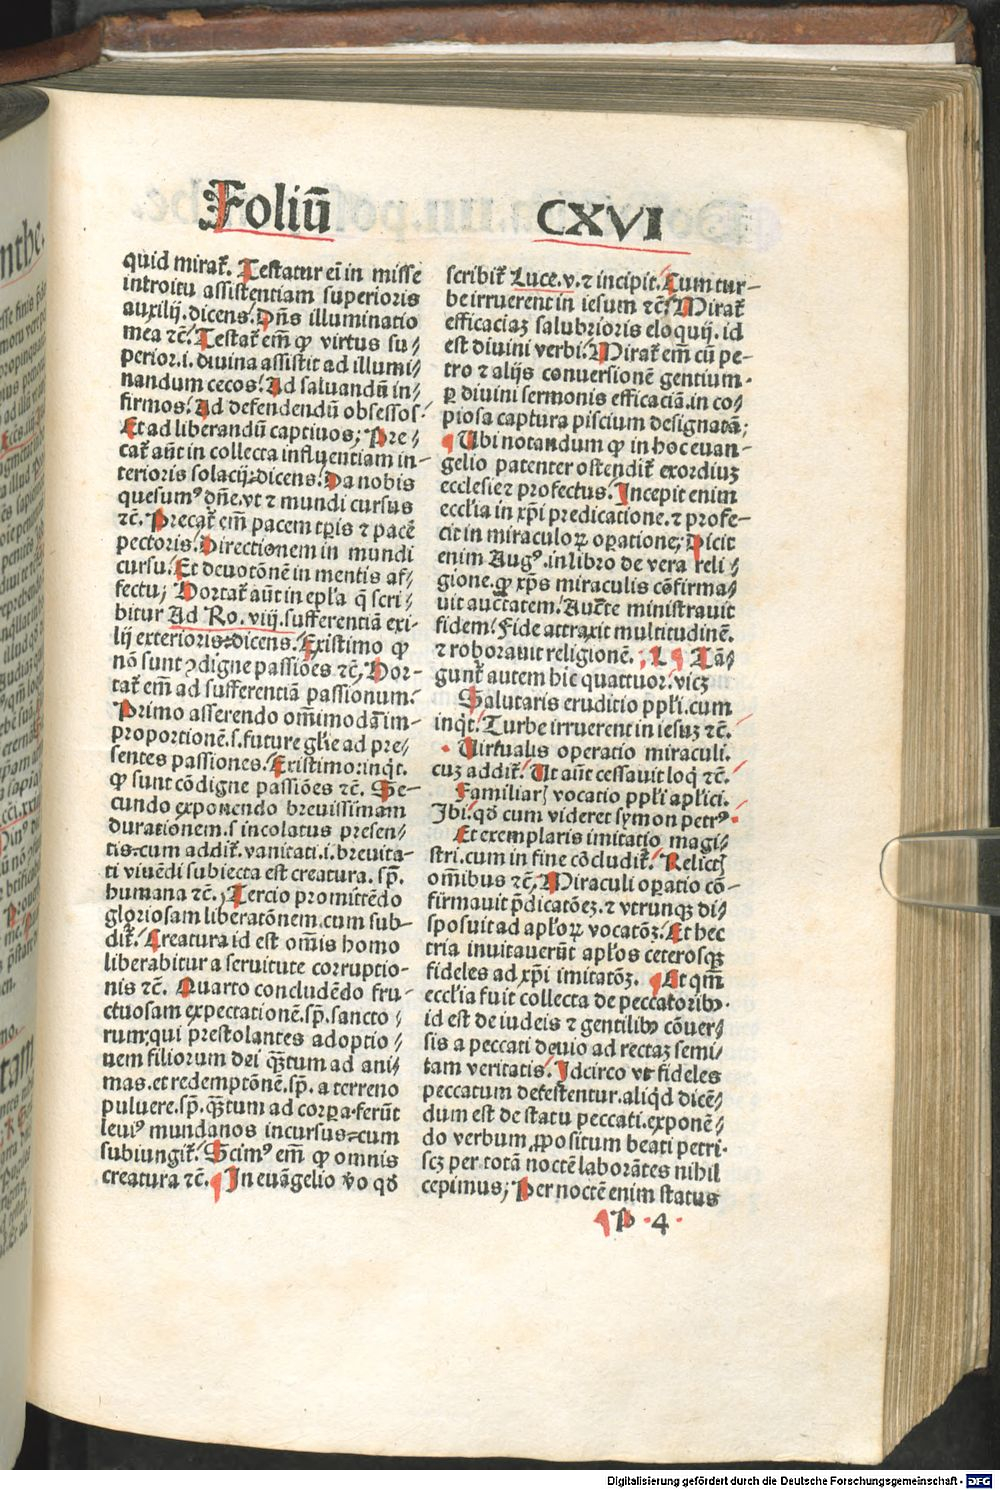 Foliū CXVI
quid mirat̄. Testatur eī in misse
introitu assistentiam superioris
auxilij. dicens. Dn̄s illuminatio
mea ⁊c̄. Testat̄ em̄ ꝙ virtus su/
perior .i. diuina assistit ad illumi/
nandum cecos. Ad saluandū in/
firmos. Ad defendendū obsessos.
Et ad liberandū captiuos; Pre/
cat̄ aūt in collecta influentiam in-
terioris solacij: dicens. Da nobis
quesumꝰ dn̄e. vt ⁊ mundi cursus
⁊c̄. Precat̄ em̄ pacem tꝑis ⁊ pacē
pectoris. Directionem in mundi
cursu. Et deuotōnē in mentis af-
fectu; Hortat̄ aūt in epl̄a q̄ scri-
bitur Ad Ro. viij. sufferentiā exi-
lij exterioris: dicens. Existimo ꝙ
nō sunt ↄdigne passiōes ⁊c̄; Hor-
tat̄ em̄ ad sufferentiā passionum.
Primo asserendo om̄imodā im-
proportionē .s. future gl̄ie ad pre/
sentes passiones. Existimo: inqͥt.
ꝙ sunt cōdigne passiōes ⁊c̄. Se-
cundo exponendo breuissimam
durationem .s. incolatus presen/
tis. cum addit̄. vanitati .i. breuita-
ti viuēdi subiecta est creatura. sꝑ.
humana ⁊c̄; Tercio promittēdo
gloriosam liberatōnem. cum sub-
dit̄. Creatura id est om̄is homo
liberabitur a seruitute corruptio-
nis ⁊c̄. Quarto concludēdo fru-
ctuosam expectationē. sp̄. sancto/
rum: qui prestolantes adoptio/
nem filiorum dei qꝫ̄tum ad ani/
mas. et redemptōnē. sp̄. a terreno
puluere. sp̄. qꝫ̄tum ad corꝑa. ferūt
leuiꝰ mundanos incursus. cum
subiungit̄. Scimꝰ em̄ ꝙ omnis
creatura ⁊c̄. ¶ In euāgelio v̄o qd̄
scribit̄ Luce. v. ⁊ incipit. Cum tur-
be irruerent in iesum ⁊c̄. Mirat̄
efficaciaꝫ salubrioris eloquij. id
est diuini verbi. Mirat̄ em̄ cū pe-
tro ⁊ alijs conuersionē gentium.
ꝑ diuini sermonis efficaciā. in co/
piosa captura piscium designatā;
¶ Ubi notandum ꝙ in hoc euan-
gelio patenter ostendit̄ exordiuꝫ
ecclesie ⁊ profectus. Incepit enim
eccl̄ia in xp̄i predicatione. ⁊ profe-
cit in miraculoꝝ oꝑatione; Dicit
enim Augꝰ. in libro de vera reli/
gione. ꝙ xp̄s miraculis cōfirma/
uit auctatem. Aucte ministrauit
fidem. Fide attraxit multitudinē.
⁊ roborauit religionē. ¶ Tā/
gunt̄ autem hic quattuor. vicꝫ
Salutaris eruditio ppl̄i. cum
inqͥt. Turbe irruerent in iesuꝫ ⁊c̄.
Uirtualis operatio miraculi.
cuꝫ addit̄. Ut aūt cessauit loqͥ ⁊c̄.
Familiarꝭ vocatio ppl̄i apl̄ici.
Ibi. qd̄ cum videret symon petrꝰ.
Et exemplaris imitatio magi/
stri. cum in fine cōcludit̄. Relictꝭ
om̄ibus ⁊c̄; Miraculi oꝑatio cō-
firmauit p̄dicatōeꝫ. ⁊ vtrunqꝫ di/
sposuit ad apl̄oꝝ vocatōꝫ. Et hec
tria inuitauerūt apl̄os ceterosqꝫ
fideles ad xp̄i imitatōꝫ. ¶ Et qm̄
eccl̄ia fuit collecta de peccatoribꝰ.
id est de iudeis ⁊ gentilibꝰ cōuer/
sis a peccati deuio ad rectaꝫ semi/
tam veritatis. Idcirco vt fideles
peccatum detestentur. aliqd̄ dicē/
dum est de statu peccati. exponē/
do verbum ꝓpositum beati petri.
scꝫ per totā noctē laborātes nihil
cepimus; Per noctē enim status
¶ P 4
Digitalisierung gefördert durch die Deutsche Forschungsgemeinschaft - DFG